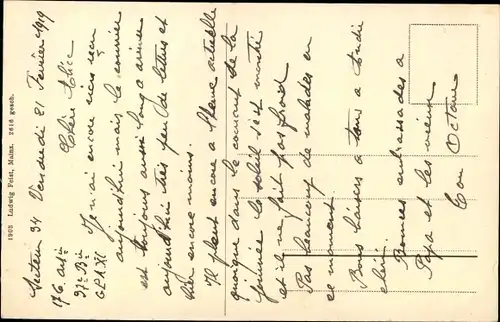 Secteur 94 Vendredi 21 Février 1919
176 arti
97e Bie
GPA XI
Chère Alice
Je n'ai encore rien reçu
aujourd'hui mais le courrier
est toujours aussi long a arriver
aujourd'hui très peu de lettres et
hier encore moins.
Il pleut encore a l'heure actuelle
quoique dans le courant de la
journée le soleil s'est montré
et il ne fait pas froid
Pas beaucoup de malades en
ce moment.
Bons baisers a tous a Dudu
chéri.
Bonnes embrassades a
Papa et les vieux
Ton Octave
1903 Ludwig Feist, Mainz. 2616 gesch.